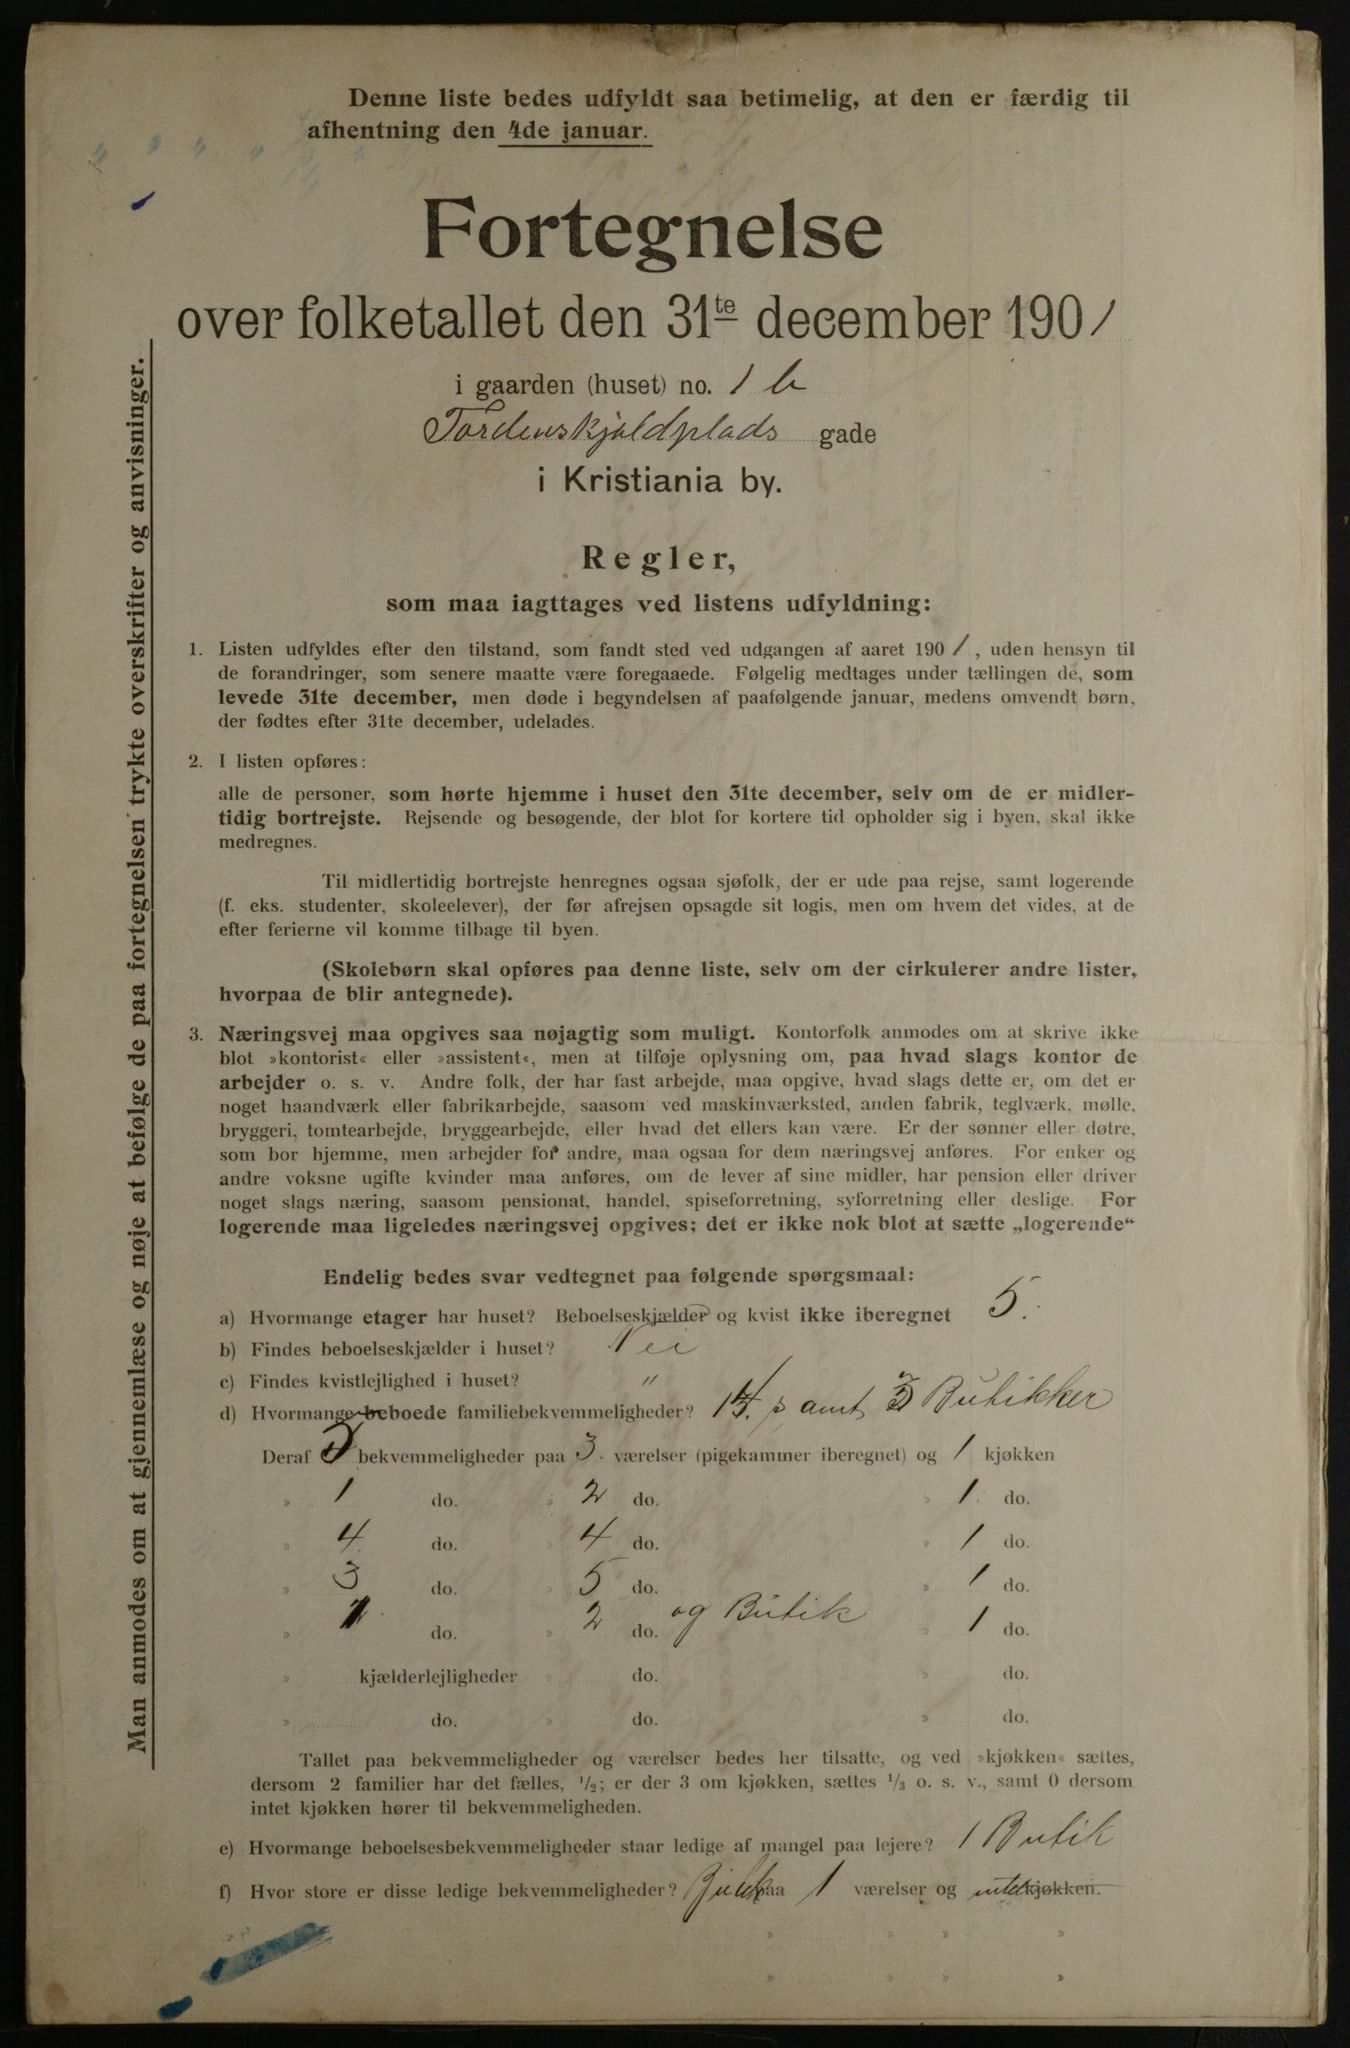 Denne liste bedes udfyldt saa betimelig, at den er færdig til
afhentning den 4de januar.
Fortegnelse
over folketallet den 31te december 1901
i gaarden (huset) no. 1 b
Tordenskjoldplads gade
i Kristiania by.
Regler,
som maa iagttages ved listens udfyldning:
1. Listen udfyldes efter den tilstand, som fandt sted ved udgangen af aaret 1901, uden hensyn til
de forandringer, som senere maatte være foregaaede. Følgelig medtages under tællingen de, som
levede 31te december, men døde i begyndelsen af paafølgende januar, medens omvendt børn,
der fødtes efter 31te december, udelades.
2. I listen opføres:
alle de personer, som hørte hjemme i huset den 31te december, selv om de er midler-
tidig bortrejste. Rejsende og besøgende, der blot for kortere tid opholder sig i byen, skal ikke
medregnes.
Til midlertidig bortrejste henregnes ogsaa sjøfolk, der er ude paa rejse, samt logerende
(f. eks. studenter, skoleelever), der før afrejsen opsagde sit logis, men om hvem det vides, at de
efter ferierne vil komme tilbage til byen.
(Skolebørn skal opføres paa denne liste, selv om der cirkulerer andre lister,
hvorpaa de blir antegnede).
3. Næringsvej maa opgives saa nøjagtig som muligt. Kontorfolk anmodes om at skrive ikke
blot »kontorist« eller »assistent«, men at tilføje oplysning om, paa hvad slags kontor de
arbejder o. s. v. Andre folk, der har fast arbejde, maa opgive, hvad slags dette er, om det er
noget haandværk eller fabrikarbejde, saasom ved maskinværksted, anden fabrik, teglværk, mølle,
bryggeri, tomtearbejde, bryggearbejde, eller hvad det ellers kan være. Er der sønner eller døtre,
som bor hjemme, men arbejder for andre, maa ogsaa for dem næringsvej anføres. For enker og
andre voksne ugifte kvinder maa anføres, om de lever af sine midler, har pension eller driver
noget slags næring, saasom pensionat, handel, spiseforretning, syforretning eller deslige. For
logerende maa ligeledes næringsvej opgives; det er ikke nok blot at sætte „logerende“
Endelig bedes svar vedtegnet paa følgende spørgsmaal:
a) Hvormange etager har huset? Beboelseskjælder og kvist ikke iberegnet 5.
b) Findes beboelseskjælder i huset? Nei
c) Findes kvistlejlighed i huset? "
d) Hvormange beboede familiebekvemmeligheder? 14. samt 3 Butikker
Deraf 5 bekvemmeligheder paa 3 værelser (pigekammer iberegnet) og 1 kjøkken
» 1 do. » 2 do. » 1 do.
» 4 do. » 4 do. » 1 do.
» 3 do. » 5 do. » 1 do.
» 1 do. » 2 do. og Butik » 1 do.
» kjælderlejligheder » do. » do.
» do. » do. » do.
Tallet paa bekvemmeligheder og værelser bedes her tilsatte, og ved »kjøkken« sættes,
dersom 2 familier har det fælles, 1/2; er der 3 om kjøkken, sættes 1/3 o. s. v., samt 0 dersom
intet kjøkken hører til bekvemmeligheden.
e) Hvormange beboelsesbekvemmeligheder staar ledige af mangel paa lejere? 1 Butik
f) Hvor store er disse ledige bekvemmeligheder? Butik paa 1 værelser og intet kjøkken.
» » »
» » »
Man anmodes om at gjennemlæse og nøje at befølge de paa fortegnelsen trykte overskrifter og anvisninger.